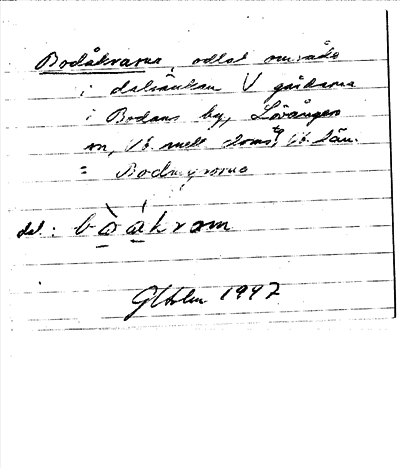 Bodåkrarna, odlat område
i dalsänkan V gårdarna
i Bodans by, Lövångers
sn, Vb. mell. doms, Vb. län.
= Bodmyrorna
dial.: bååkram
G Holm 1947